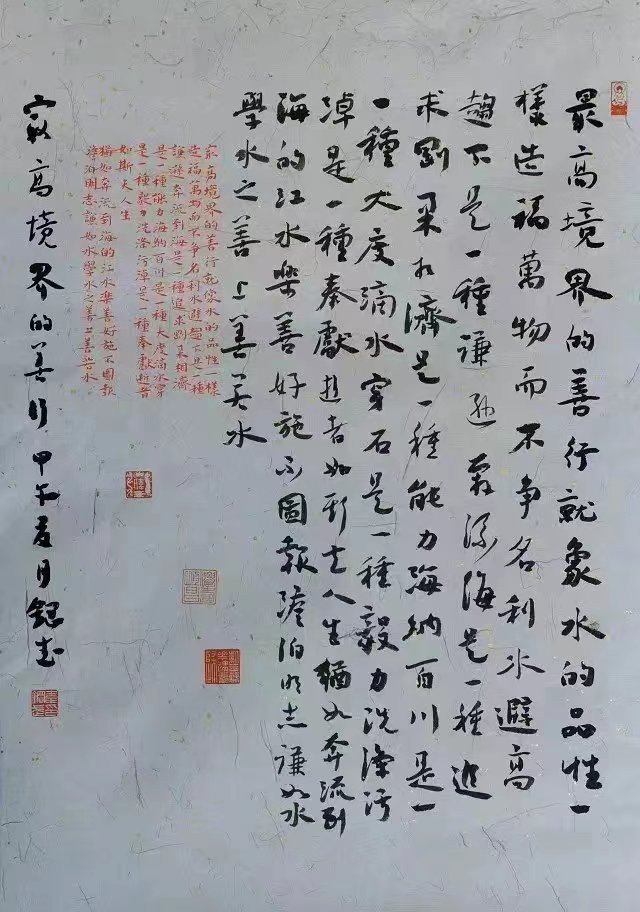 最高境界的善行就象水的品性一
樣造福萬物而不争名利水避高
趨下是一種谦遜奔流海是一種追
求剛柔相濟是一種能力海納百川是一
一種大度滴水穿石是一種毅力洗滌污
淖是一種奉獻逝者如斯夫人生猶如奔流到
海的江水樂善好施不圖報澹泊明志謙如水
學水之善上善若水
冣高境界的善行就像水的品性一樣
造福萬物而不争名利水避趨下是一種
謙遜奔流到海是一種追求剛柔相濟
是一種能力海納百川是一種大度滴水穿
是一種毅力洗滌污淖是一種奉獻逝者
如斯夫人生
猶如奔流到海的江水樂善好施不圖報
淡泊明志謙如水學水之善上善若水
冣高境界的善行甲午夏月